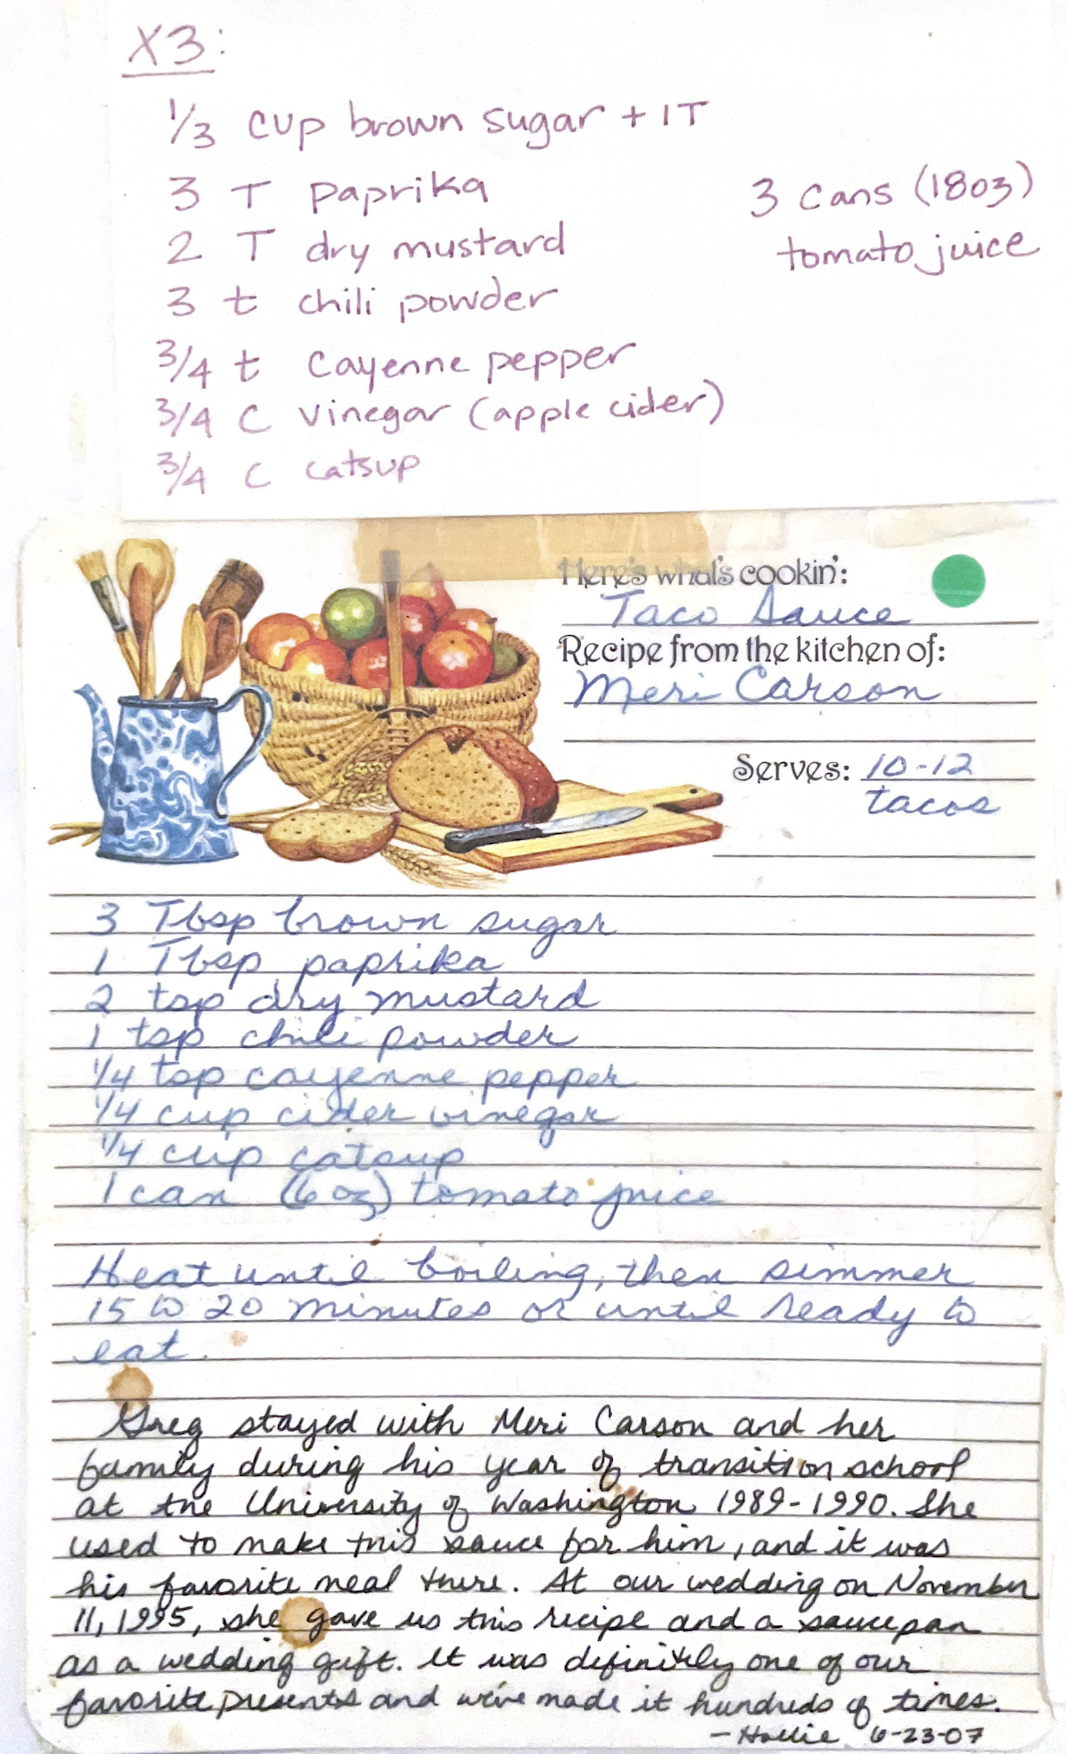 X3:
1/3 cup brown sugar + 1T
3 T paprika
2 T dry mustard
3 t chili powder
3/4 t cayenne pepper
3/4 C vinegar (apple cider)
3/4 C catsup
3 cans (18oz)
tomato juice
Here's what's cookin':
Taco Sauce
Recipe from the kitchen of:
Meri Carson
Serves: 10-12
tacos
3 Tbsp brown sugar
1 Tbsp paprika
2 tsp dry mustard
1 tsp chili powder
1/4 tsp cayenne pepper
1/4 cup cider vinegar
1/4 cup catsup
1 can (6 oz) tomato juice
Heat until boiling, then simmer
15 to 20 minutes or until ready to
eat.
Greg stayed with Meri Carson and her
family during his year of transition school
at the University of Washington 1989-1990. She
used to make this sauce for him, and it was
his favorite meal there. At our wedding on November
11, 1995, she gave us this recipe and a saucepan
as a wedding gift. It was definitely one of our
favorite presents and we've made it hundreds of times.
- Hollie 6-23-07